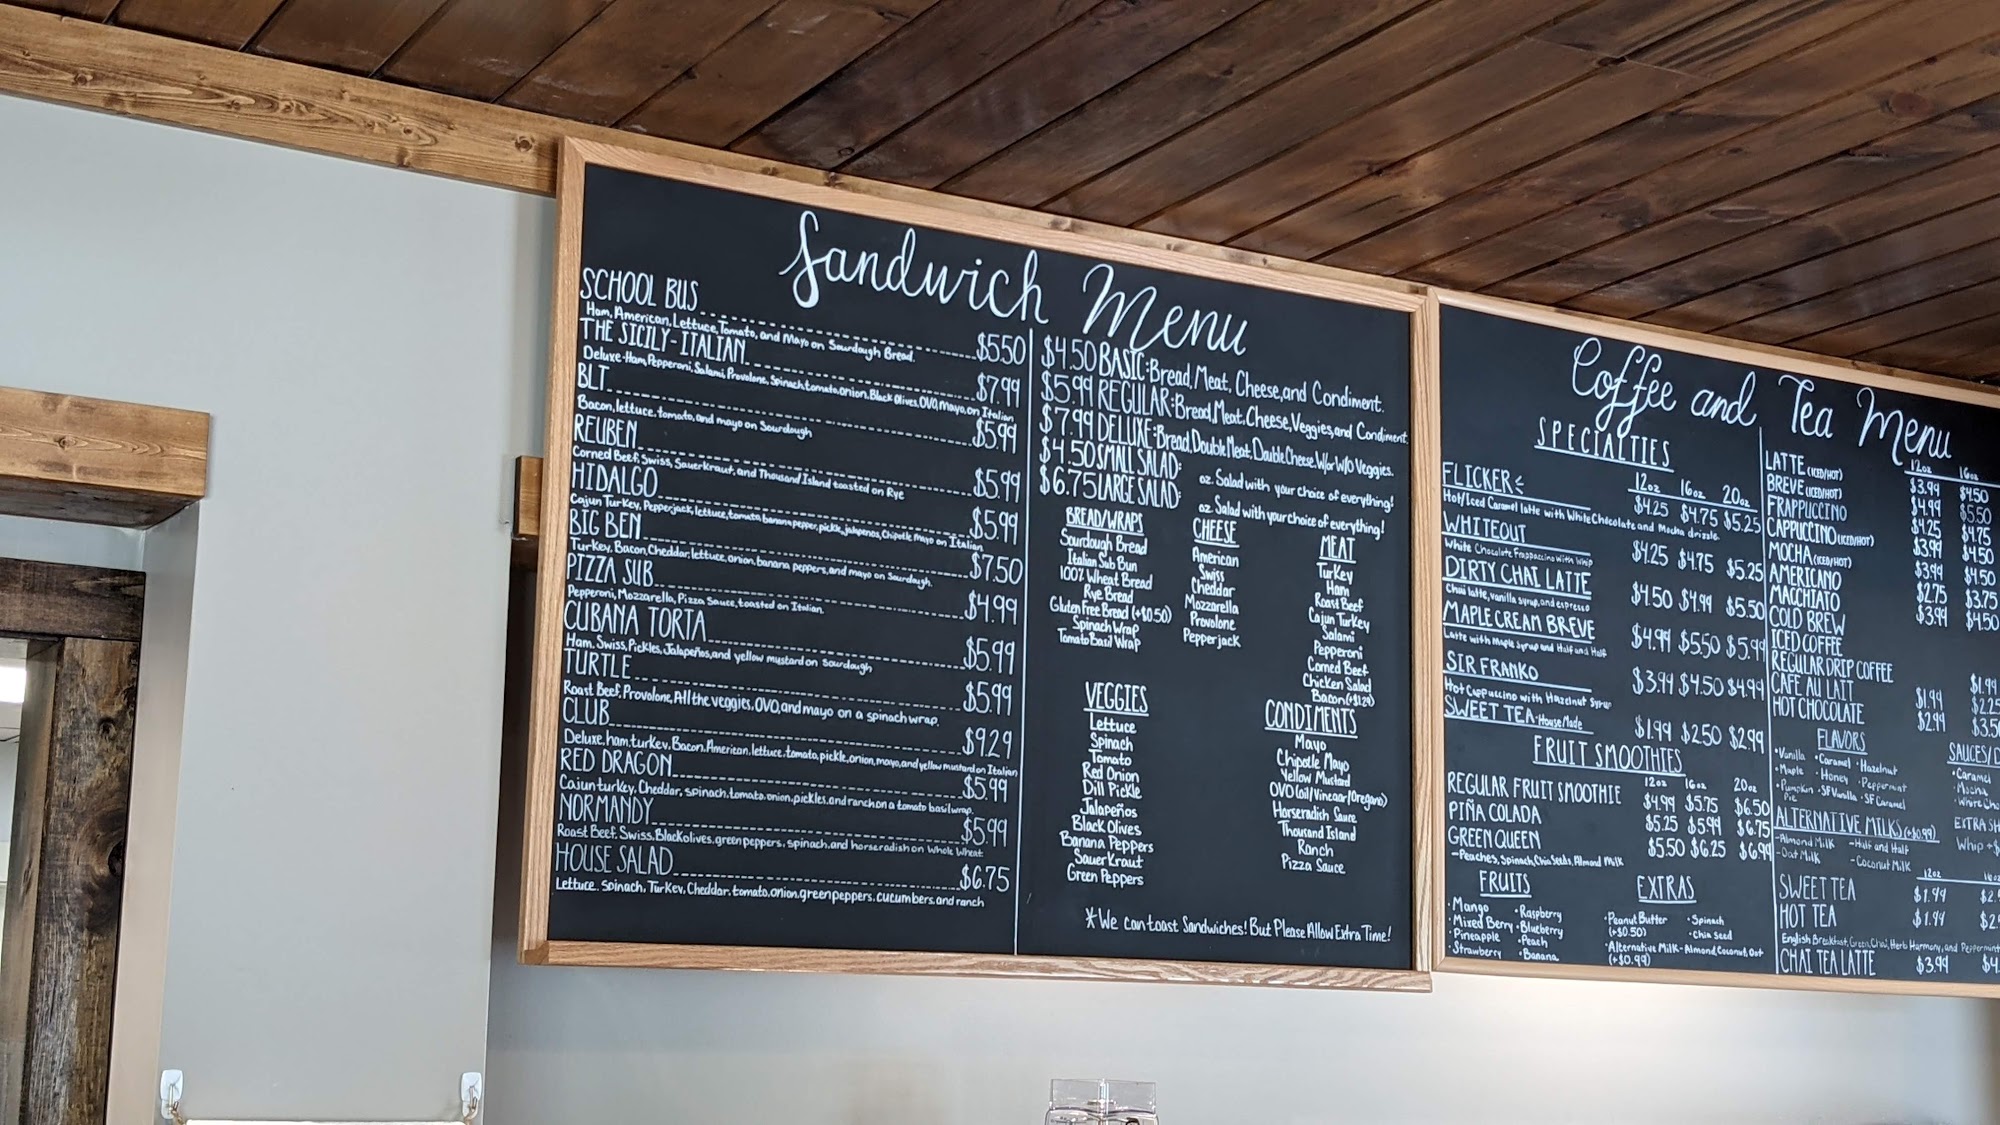 Sandwich Menu
SCHOOL BUS $5.50
Ham, American, Lettuce, Tomato, and Mayo on Sourdough Bread.
THE SICILY-ITALIAN $7.99
Deluxe-Ham, Pepperoni, Salami, Provolone, Spinach, tomato, onion, Black Olives, OVO, Mayo, on Italian
BLT $5.99
Bacon, lettuce, tomato, and mayo on Sourdough
REUBEN $5.99
Corned Beef, Swiss, Sauerkraut, and Thousand Island toasted on Rye
HIDALGO $5.99
Cajun Turkey, Pepperjack, lettuce, tomato, banana pepper, pickle, jalapenos, Chipotle Mayo on Italian
BIG BEN $7.50
Turkey, Bacon, Cheddar, lettuce, onion, banana peppers, and mayo on Sourdough.
PIZZA SUB $4.99
Pepperoni, Mozzarella, Pizza Sauce, toasted on Italian.
CUBANA TORTA $5.99
Ham, Swiss, Pickles, Jalapeños, and yellow mustard on Sourdough
TURTLE $5.99
Roast Beef, Provolone, All the veggies, OVO, and mayo on a spinach wrap.
CLUB $9.29
Deluxe, ham, turkey, Bacon, American, lettuce, tomato, pickle, onion, mayo, and yellow mustard on Italian
RED DRAGON $5.99
Cajun turkey, Cheddar, spinach, tomato, onion, pickles, and ranch on a tomato basil wrap.
NORMANDY $5.99
Roast Beef, Swiss, Black olives, green peppers, spinach, and horseradish on Whole Wheat
HOUSE SALAD $6.75
Lettuce, Spinach, Turkey, Cheddar, tomato, onion, green peppers, cucumbers, and ranch
$4.50 BASIC: Bread, Meat, Cheese, and Condiment.
$5.99 REGULAR: Bread, Meat, Cheese, Veggies, and Condiment
$7.99 DELUXE: Bread, Double Meat, Double Cheese, W/or W/O Veggies.
$4.50 SMALL SALAD: oz. Salad with your choice of everything!
$6.75 LARGE SALAD: oz. Salad with your choice of everything!
BREAD/WRAPS
Sourdough Bread
Italian Sub Bun
100% Wheat Bread
Rye Bread
Gluten Free Bread (+$0.50)
Spinach Wrap
Tomato Basil Wrap
CHEESE
American
Swiss
Cheddar
Mozzarella
Provolone
Pepperjack
MEAT
Turkey
Ham
Roast Beef
Cajun Turkey
Salami
Pepperoni
Corned Beef
Chicken Salad
Bacon (+$1.29)
VEGGIES
Lettuce
Spinach
Tomato
Red Onion
Dill Pickle
Jalapeños
Black Olives
Banana Peppers
SauerKraut
Green Peppers
CONDIMENTS
Mayo
Chipotle Mayo
Yellow Mustard
OVO (oil/Vinegar/Oregano)
Horseradish Sauce
Thousand Island
Ranch
Pizza Sauce
*We can toast Sandwiches! But Please Allow Extra Time!
Coffee and Tea Menu
SPECIALTIES
12oz 16oz 20oz
FLICKER $4.25 $4.75 $5.25
Hot/Iced Caramel latte with White Chocolate and Mocha drizzle
WHITEOUT $4.25 $4.75 $5.25
White Chocolate Frappuccino with Whip
DIRTY CHAI LATTE $4.50 $4.99 $5.50
Chai latte, vanilla syrup, and espresso
MAPLE CREAM BREVE $4.99 $5.50 $5.99
Latte with maple syrup and Half and Half
SIR FRANKO $3.99 $4.50 $4.99
Hot Cappuccino with Hazelnut Syrup
SWEET TEA-House Made $1.99 $2.50 $2.99
FRUIT SMOOTHIES
12oz 16oz 20oz
REGULAR FRUIT SMOOTHIE $4.99 $5.75 $6.50
PIÑA COLADA $5.25 $5.99 $6.75
GREEN QUEEN $5.50 $6.25 $6.99
-Peaches, Spinach, Chia Seeds, Almond Milk
FRUITS
·Mango
·Mixed Berry
·Pineapple
·Strawberry
·Raspberry
·Blueberry
·Peach
·Banana
EXTRAS
·Peanut Butter (+$0.50)
·Spinach
·chia seed
·Alternative Milk-Almond, Coconut, Oat (+$0.99)
12oz 16oz
LATTE (ICED/HOT) $3.99 $4.50
BREVE (ICED/HOT) $4.99 $5.50
FRAPPUCCINO $4.25 $4.75
CAPPUCCINO (ICED/HOT) $3.99 $4.50
MOCHA (ICED/HOT) $3.99 $4.50
AMERICANO $2.75 $3.75
MACCHIATO $3.99 $4.50
COLD BREW
ICED COFFEE
REGULAR DRIP COFFEE
CAFE AU LAIT $1.99
HOT CHOCOLATE $2.99
FLAVORS
·Vanilla ·Caramel ·Hazelnut
·Maple ·Honey ·Peppermint
·Pumpkin Pie ·SF Vanilla ·SF Caramel
·Caramel
·Mocha
ALTERNATIVE MILKS (+$0.99)
-Almond Milk -Half and Half
-Oat Milk -Coconut Milk
Whip
12oz
SWEET TEA $1.99
HOT TEA $1.99
English Breakfast, Green, Chai, Herb Harmony, and Peppermint
CHAI TEA LATTE $3.99